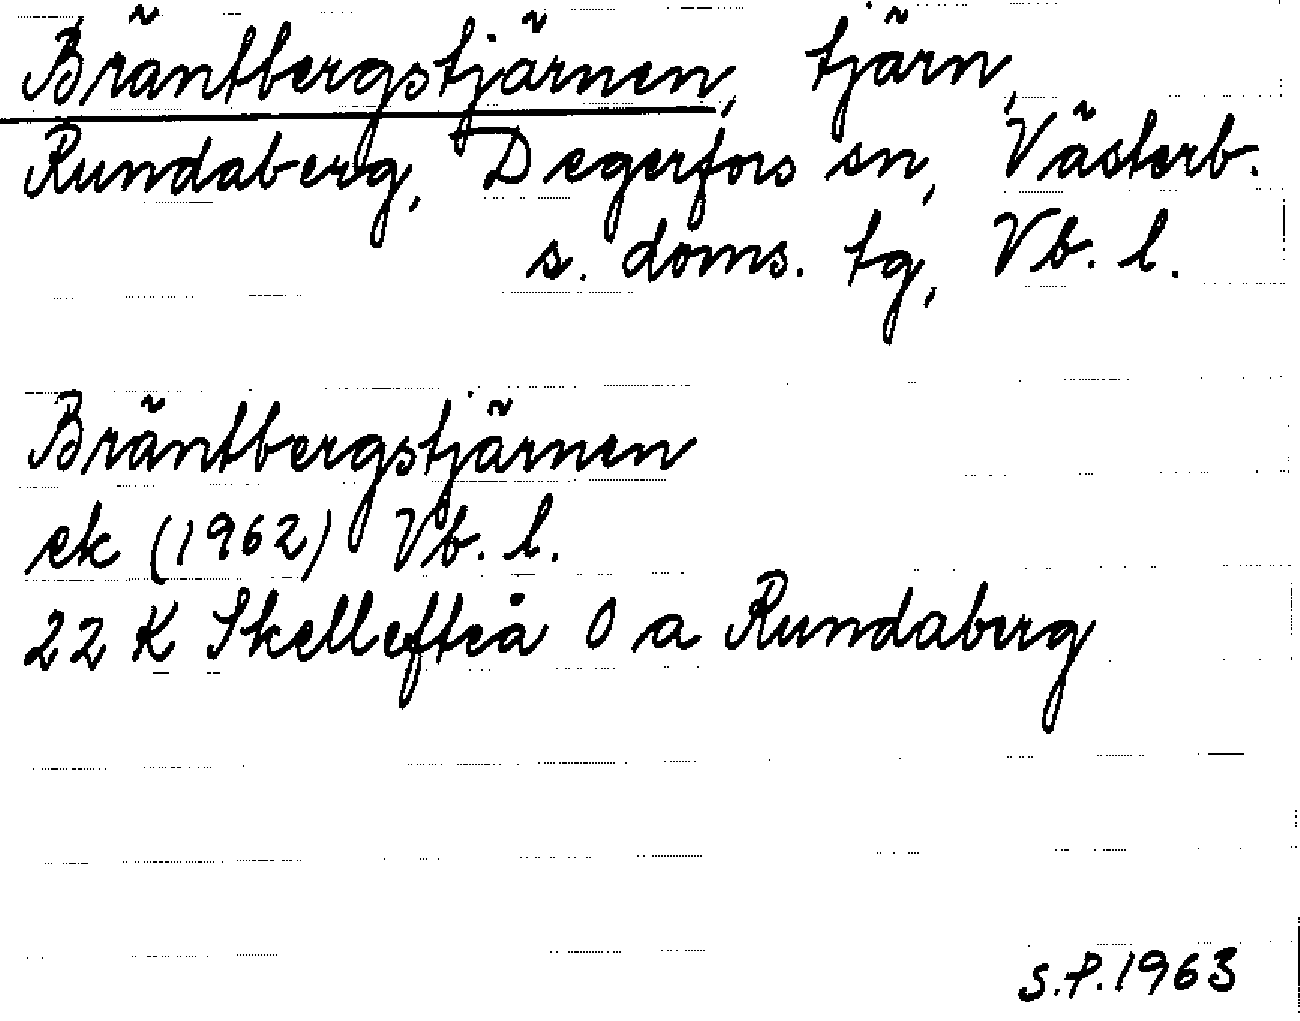 Bräntbergstjärnen, tjärn,
Rundaberg, Degerfors sn, Västerb.
s. doms. tg, Vb. l.
Bräntbergstjärnen
ek (1962) Vb. l.
22 K Skellefteå 0 a Rundaberg
S.P. 1963